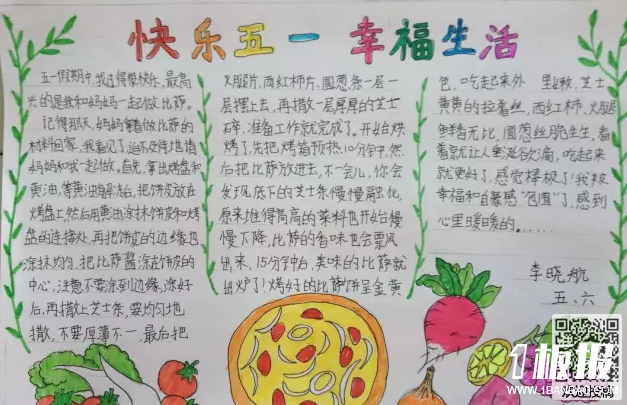 快乐五一 幸福生活
五一假期中,我过得很快乐,最高
兴的是我和妈妈一起做比萨。
记得那天,妈妈拿着做比萨的
材料回家,我看见了,迫不及待地请
妈妈和我一起做。首先,拿出烤盘和
黄油,等黄油解冻后,把饼皮放在
烤盘上,然后用黄油涂抹饼皮和烤
盘的连接处,再把饼皮的边缘也
涂抹均匀。把比萨酱涂在饼皮的
中心,注意不要涂到边缘,涂好
后,再撒上芝士条,要均匀地
撒,不要厚薄不一,最后把
火腿片、西红柿片、圆葱条一层一
层摆上去,再撒一层厚厚的芝士
碎,准备工作就完成了。开始烘
烤了,先把烤箱预热,10分钟,然
后把比萨放进去,不一会儿,你会
发现,底下的芝士条慢慢融化,
原来堆得高高的菜料也开始慢
慢下降,比萨的香味也会飘
出来,15分钟后,美味的比萨就
出炉了!烤好的比萨饼呈金黄
色,吃起来外 里嫩,芝士
黄黄的拉着丝,西红柿、火腿
鲜香无比,圆葱丝脆生生,看
着就让人垂涎欲滴,吃起来
就更好了,感觉棒极了!我被
幸福和自豪感“包围”了,感到
心里暖暖的……
李晓航
五、六
1板报
WWW.1BANBAO.COM
欢迎投稿